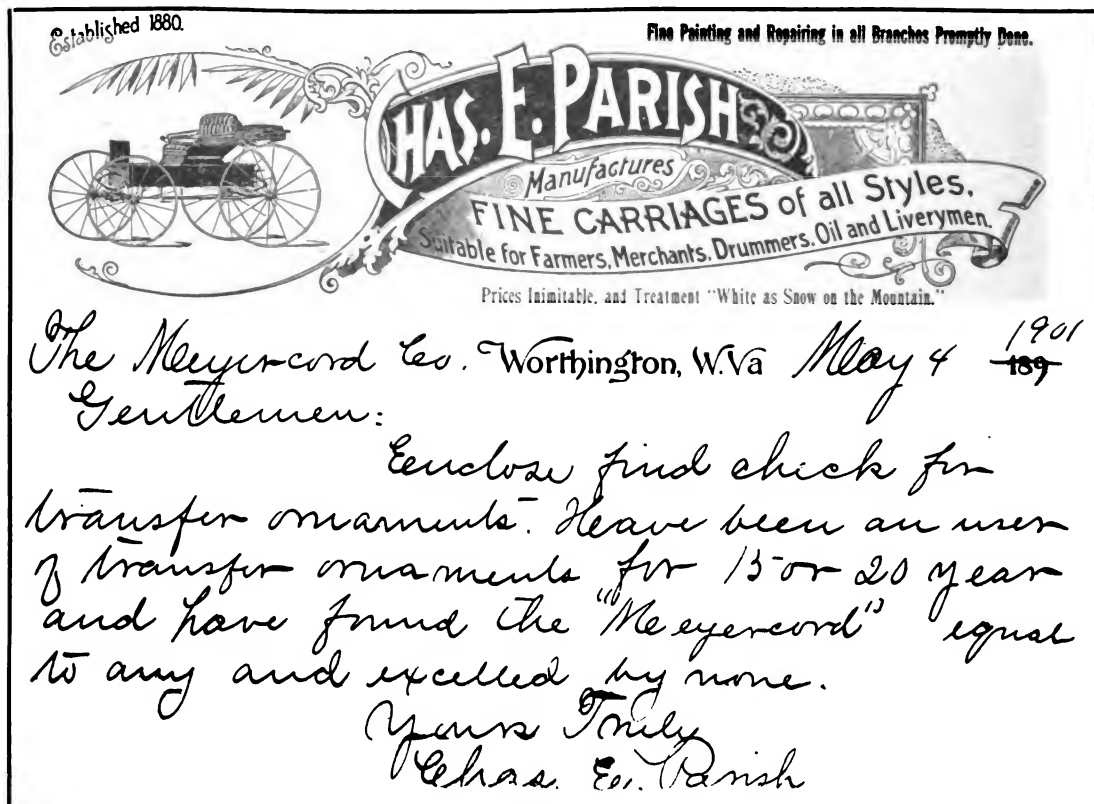 Established 1880.
Fine Painting and Repairing in all Branches Promptly Done.
CHAS. E. PARISH
Manufactures
FINE CARRIAGES of all Styles,
Suitable for Farmers, Merchants, Drummers, Oil and Liverymen.
Prices Inimitable, and Treatment "White as Snow on the Mountain."
1901
The Meyercord Co. Worthington, W.Va May 4 189
Gentlemen:
Enclose find check for
transfer ornaments. Have been an user
of transfer ornaments for 15 or 20 year
and have found the "Meyercord" equal
to any and excelled by none.
Yours Truly
Chas. E. Parish